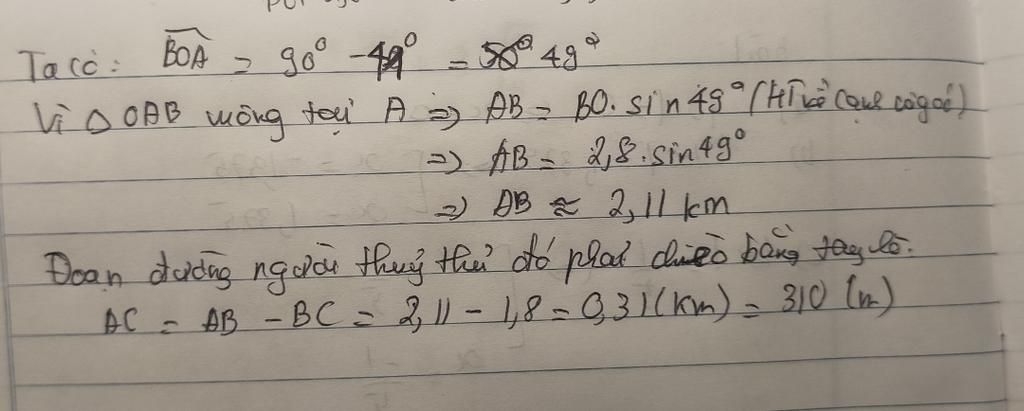 Ta có: BOA = 90° - 41° = 49°
Vì △ OAB vuông tại A => AB = BO. sin 49° (HT về cạnh và góc)
=> AB = 2,8. sin 49°
=> AB ≈ 2,11 km
Đoạn đường người thuỷ thủ đó phải chèo bằng tay là:
AC = AB - BC = 2,11 - 1,8 = 0,31 (km) = 310 (m)